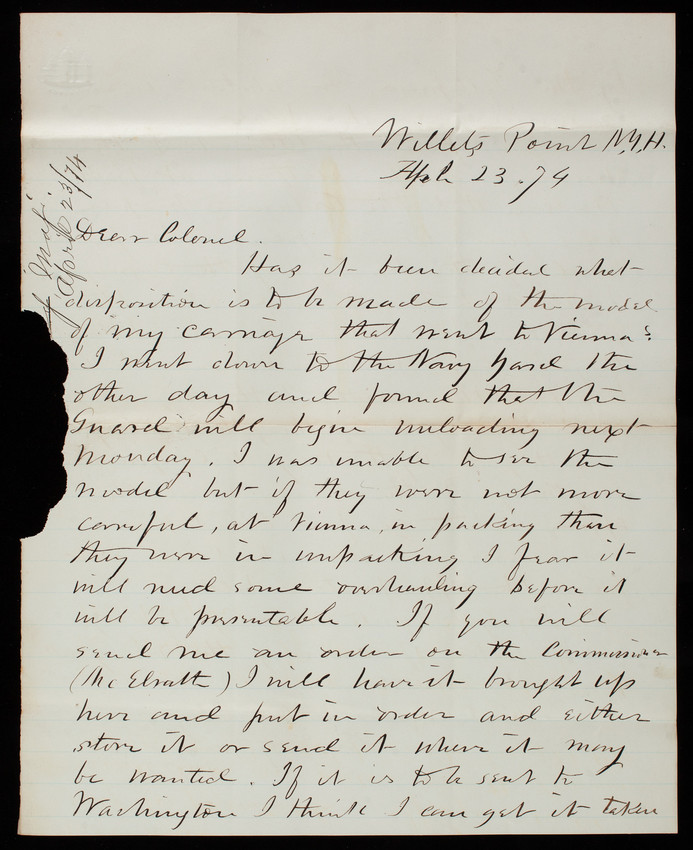 Willets Point N.Y.H.
Apl 23. 74
April 23/74
Dear Colonel.
Has it been decided what
disposition is to be made of the model
of my carriage that went to Vienna?
I went down to the Navy Yard the
other day and found that the
Guard will begin unloading next
Monday. I was unable to see the
model but if they were not more
careful, at Vienna, in packing than
they were in unpacking I fear it
will need some overhauling before it
will be presentable. If you will
send me an order on the Commissioner
(McElrath) I will have it brought up
here and put in order and either
store it or send it where it may
be wanted. If it is to be sent to
Washington I think I can get it taken